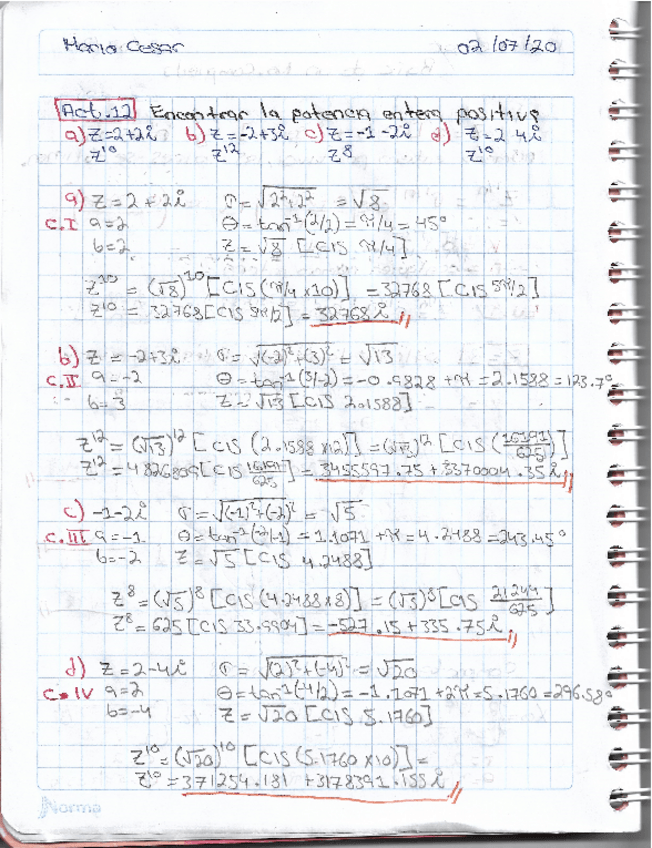 Mario Cesar 02/07/20
Act.12 Encontrar la potencia entera positiva
a) z=2+2i b) z=-2+3i c) z=-1-2i d) z=2-4i
z^10 z^12 z^8 z^10
a) z=2+2i σ=√2²+2² =√8
C.I a=2 θ=tan⁻¹(2/2)=π/4=45°
b=2 z=√8 [CIS π/4]
z^10 = (√8)^10 [CIS(π/4 x10)] =32768[CIS 5π/2]
z^10 = 32768[CIS 5π/2] = 32768i
b) z=-2+3i σ=√(-2)²+(3)² = √13
C.II a=-2 θ=tan⁻¹(3/-2)=-0.9828+π=2.1588=123.7°
b=3 z=√13 [CIS 2.1588]
z^12=(√13)^12 [CIS (2.1588 x12)]=(√13)^12 [CIS (16191/625)]
z^12=4826809[CIS 16191/625] = 3455597.75+3370004.35i
c) -1-2i σ=√(-1)²+(-2)² = √5
C.III a=-1 θ=tan⁻¹(-2/-1)=1.1071+π=4.2488=243.45°
b=-2 z=√5 [CIS 4.2488]
z^8=(√5)^8 [CIS(4.2488x8)]=(√5)^8[CIS 21244/625]
z^8=625[CIS 33.9904]=-527.15+335.75i
d) z=2-4i σ=√(2)²+(-4)² =√20
C.IV a=2 θ=tan⁻¹(-4/2)=-1.1071+2π=5.1760=296.58°
b=-4 z=√20 [CIS 5.1760]
z^10=(√20)^10 [CIS(5.1760 x10)]=
z^10=371254.181 +3178391.155i
Norma